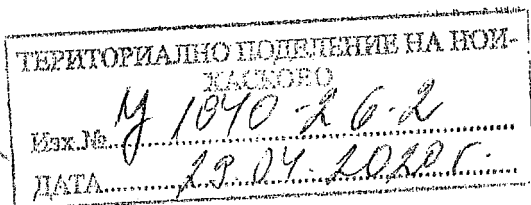 ТЕРИТОРИАЛНО ПОДЕЛЕНИЕ НА НОИ-
ХАСКОВО
Изх.№ У 1040-26-2
ДАТА 29.04.2020 г.